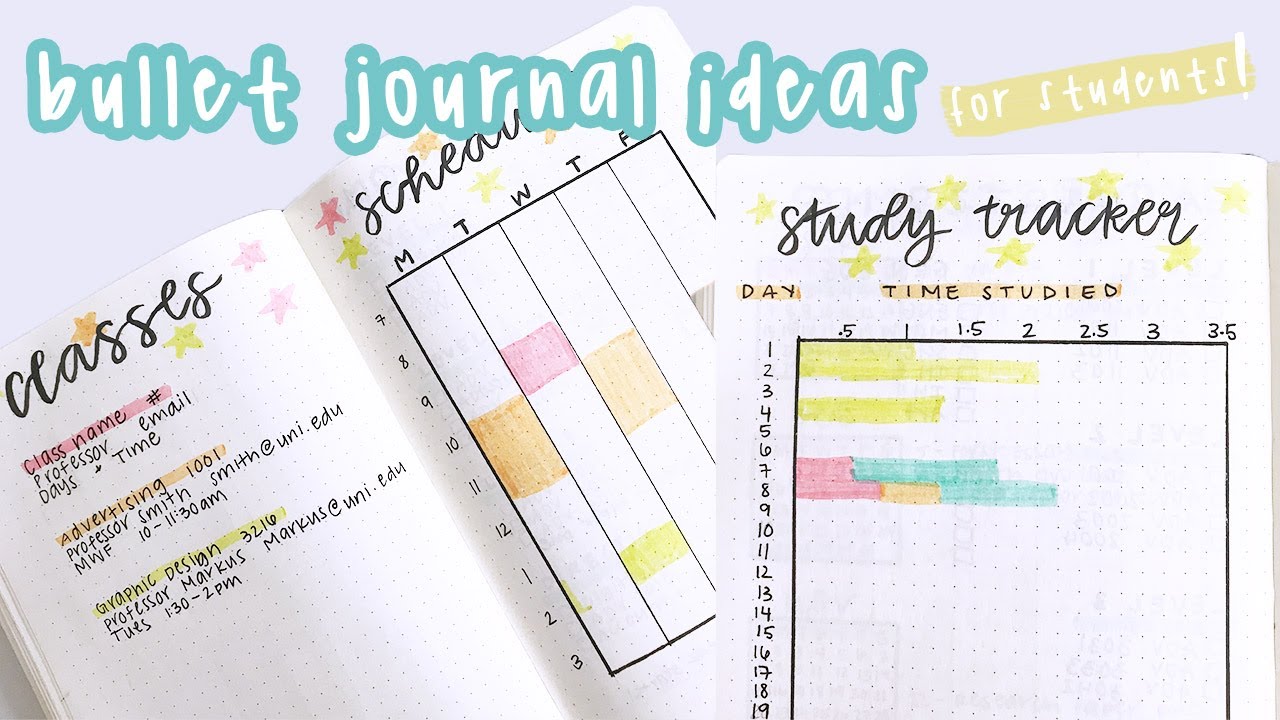 bullet journal ideas
for students!
classes
Class name #
Professor email
Days + Time
Advertising 1001
Professor Smith smith@uni.edu
MWF 10-11:30am
Graphic Design 3216
Professor Markus Markus@uni.edu
Tues 1:30-2pm
M T W T F
7
8
9
10
11
12
1
2
3
study tracker
DAY TIME STUDIED
.5 1 1.5 2 2.5 3 3.5
1
2
3
4
5
6
7
8
9
10
11
12
13
14
15
16
17
18
19